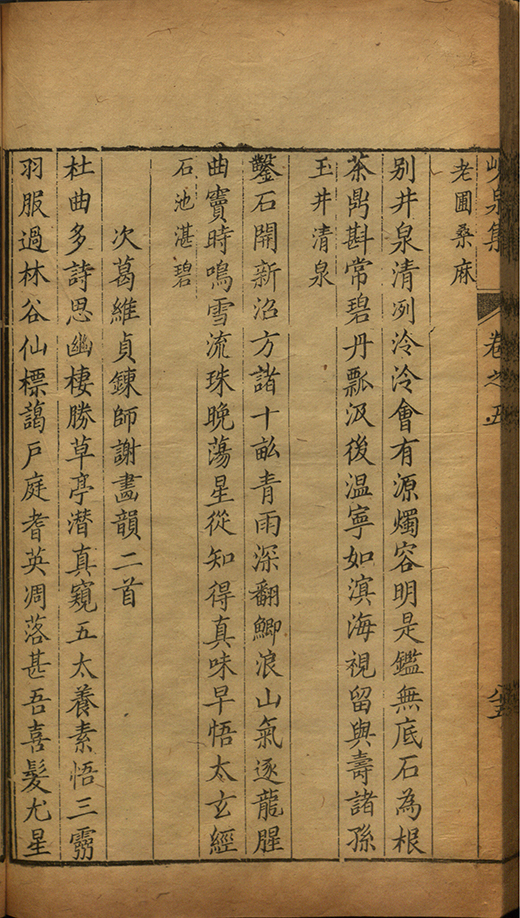 峴泉集 卷之五
老圃桑麻
别井泉清冽泠泠會有源燭容明是鑑無底石為根
茶鼎斟常碧丹瓢汲後温寧如溟海視留與壽諸孫
玉井清泉
鑿石開新沼方諸十畝青雨深翻鯽浪山氣逐龍腥
曲竇時鳴雪流珠晚蕩星從知得真味早悟太玄經
石池湛碧
次葛維貞鍊師謝畫韻二首
杜曲多詩思幽棲勝草亭潛真窺五太養素悟三靈
羽服過林谷仙標藹戶庭耆英凋落甚吾喜髮尤星